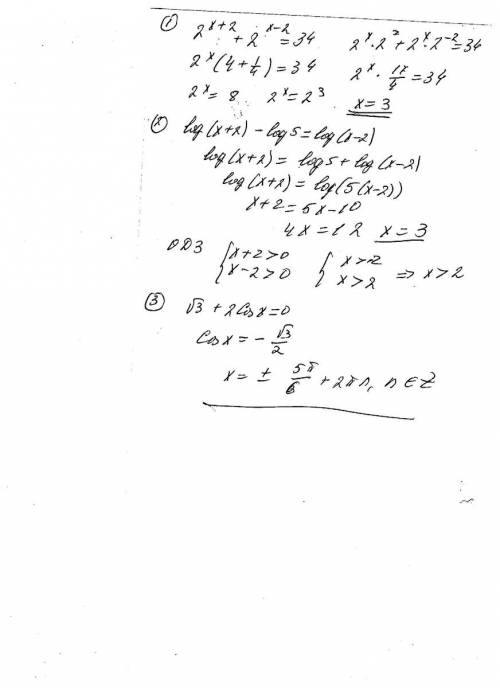 ① 2^{x+2} + 2^{x-2} = 34   2^x · 2^2 + 2^x · 2^{-2} = 34
2^x (4 + 1/4) = 34   2^x · 17/4 = 34
2^x = 8   2^x = 2^3   x = 3
② log(x+2) - log5 = log(x-2)
log(x+2) = log5 + log(x-2)
log(x+2) = log(5(x-2))
x+2 = 5x-10
4x = 12   x = 3
ОДЗ { x+2>0   { x>-2
x-2>0   x>2   => x>2
③ √3 + 2cosx = 0
cosx = - √3/2
x = ± 5π/6 + 2πn, n ∈ Z